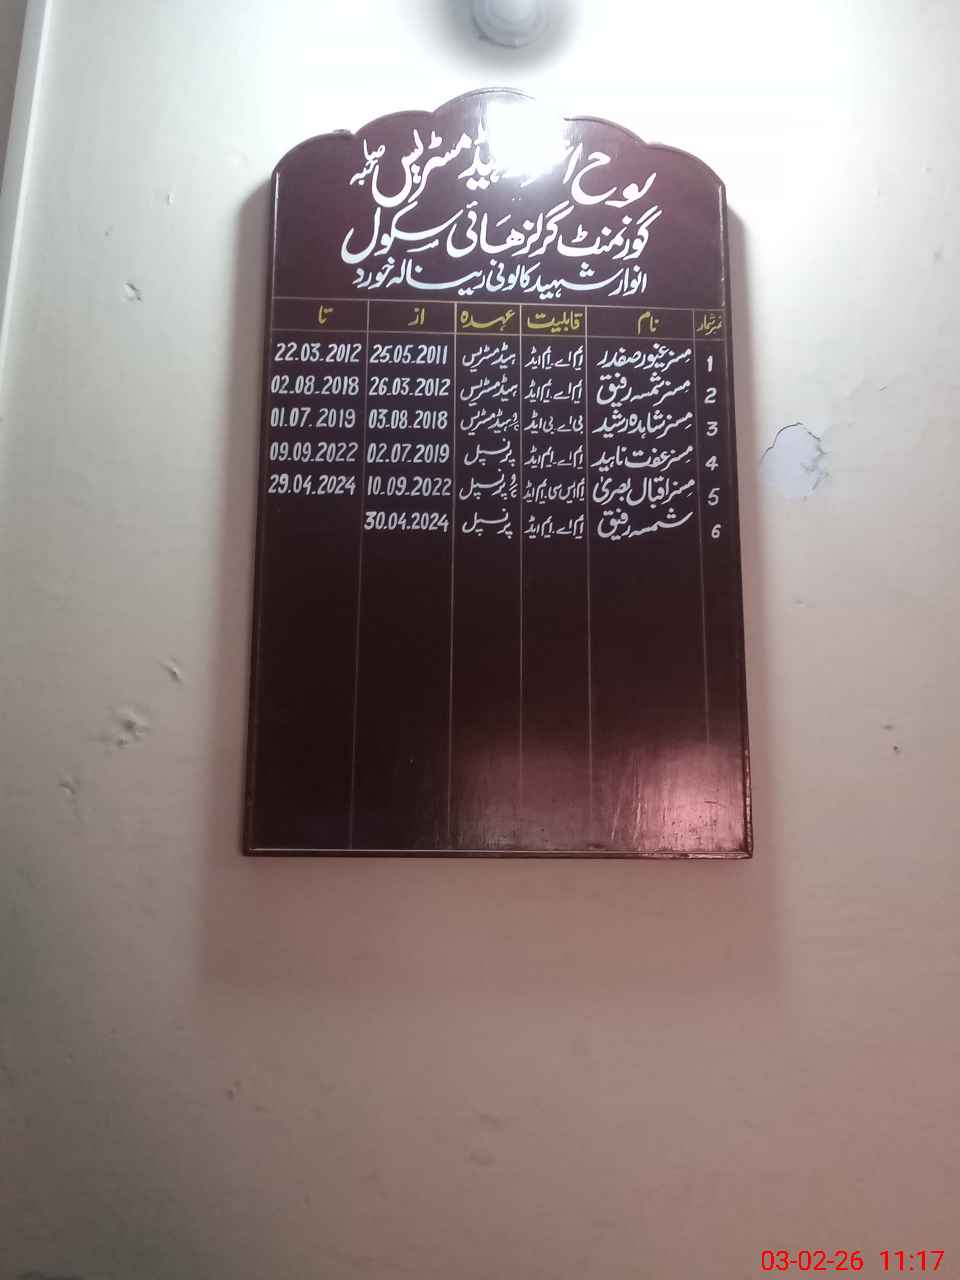 لوح اسماء ہیڈ مسٹریس صاحبہ
گورنمنٹ گرلز ھائی سکول
انوار شہید کالونی رینالہ خورد
نمبر شمار نام قابلیت عہدہ از تا
1 مسز غیور صفدر ایم اے ایم ایڈ ہیڈ مسٹریس 25.05.2011 22.03.2012
2 مسز شمسہ رفیق ایم اے ایم ایڈ ہیڈ مسٹریس 26.03.2012 02.08.2018
3 مسز شاہدہ رشید بی اے بی ایڈ ہیڈ مسٹریس 03.08.2018 01.07.2019
4 مسز عفت ناہید ایم اے ایم ایڈ پرنسپل 02.07.2019 09.09.2022
5 مسز اقبال بصریٰ ایم ایس سی ایم ایڈ پرنسپل 10.09.2022 29.04.2024
6 شمسہ رفیق ایم اے ایم ایڈ پرنسپل 30.04.2024
03-02-26 11:17